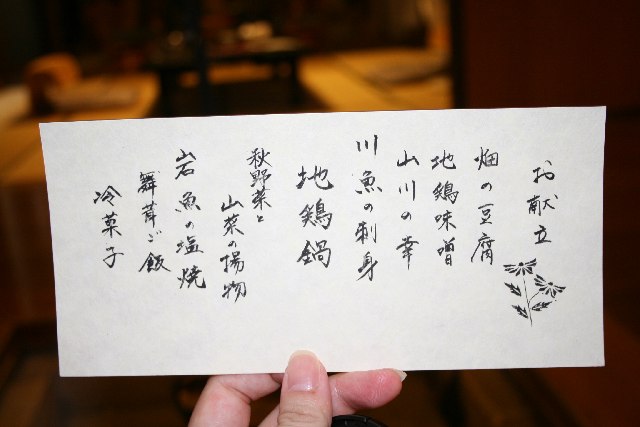 お献立
畑の豆腐
地鶏味噌
山川の幸
川魚の刺身
地鶏鍋
秋野菜と
山菜の揚物
岩魚の塩焼
舞茸ご飯
冷菓子